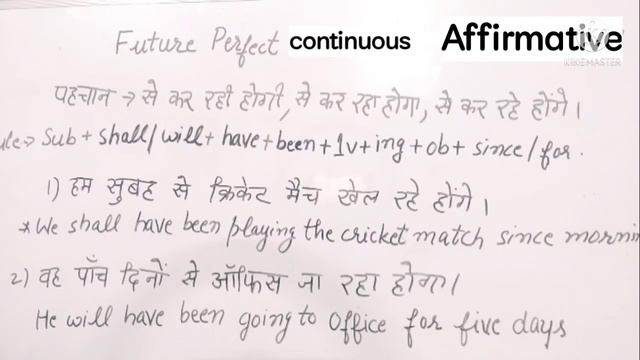 Future Perfect continuous Affirmative
KINEMASTER
पहचान → से कर रही होगी, से कर रहा होगा, से कर रहे होंगे।
ule→ Sub + shall/will + have + been + 1v + ing + ob + since/for.
1) हम सुबह से क्रिकेट मैच खेल रहे होंगे।
* We shall have been playing the cricket match since mornin
2) वह पाँच दिनों से ऑफिस जा रहा होगा।
He will have been going to office for five days